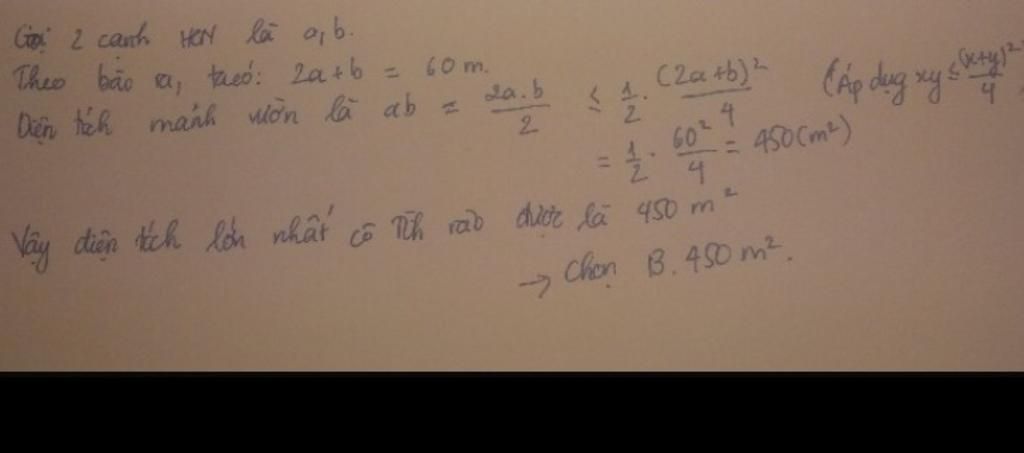 Gọi 2 cạnh HCN là a, b.
Theo bào ra, ta có: 2a + b = 60 m.
Diện tích mảnh vườn là ab = \frac{2a.b}{2} ≤ \frac{1}{2} . \frac{(2a+b)^2}{4} (Áp dụng xy ≤ \frac{(x+y)^2}{4}
= \frac{1}{2} . \frac{60^2}{4} = 450 (m²)
Vậy diện tích lớn nhất có rào được là 450 m²
→ Chọn B. 450 m².